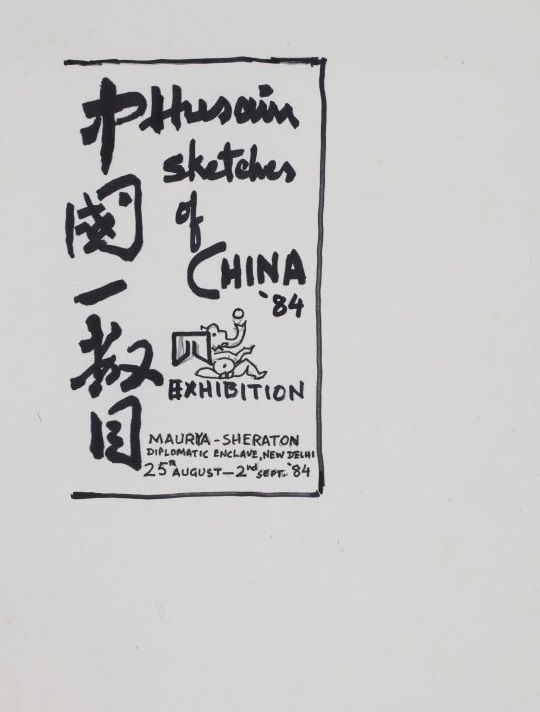 中國一瞥
Husain
sketches
of
CHINA
'84
EXHIBITION
MAURYA-SHERATON
DIPLOMATIC ENCLAVE, NEW DELHI
25TH AUGUST—2nd SEPT. '84